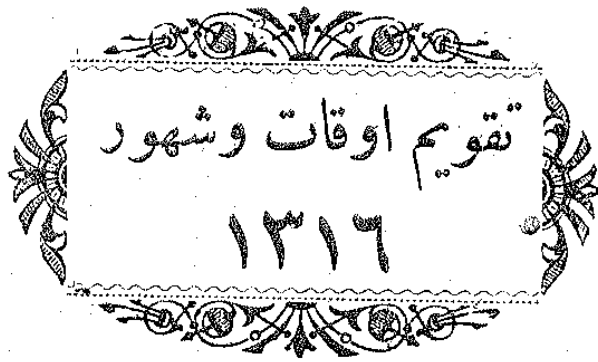 تقويم اوقات وشهور
١٣١٦